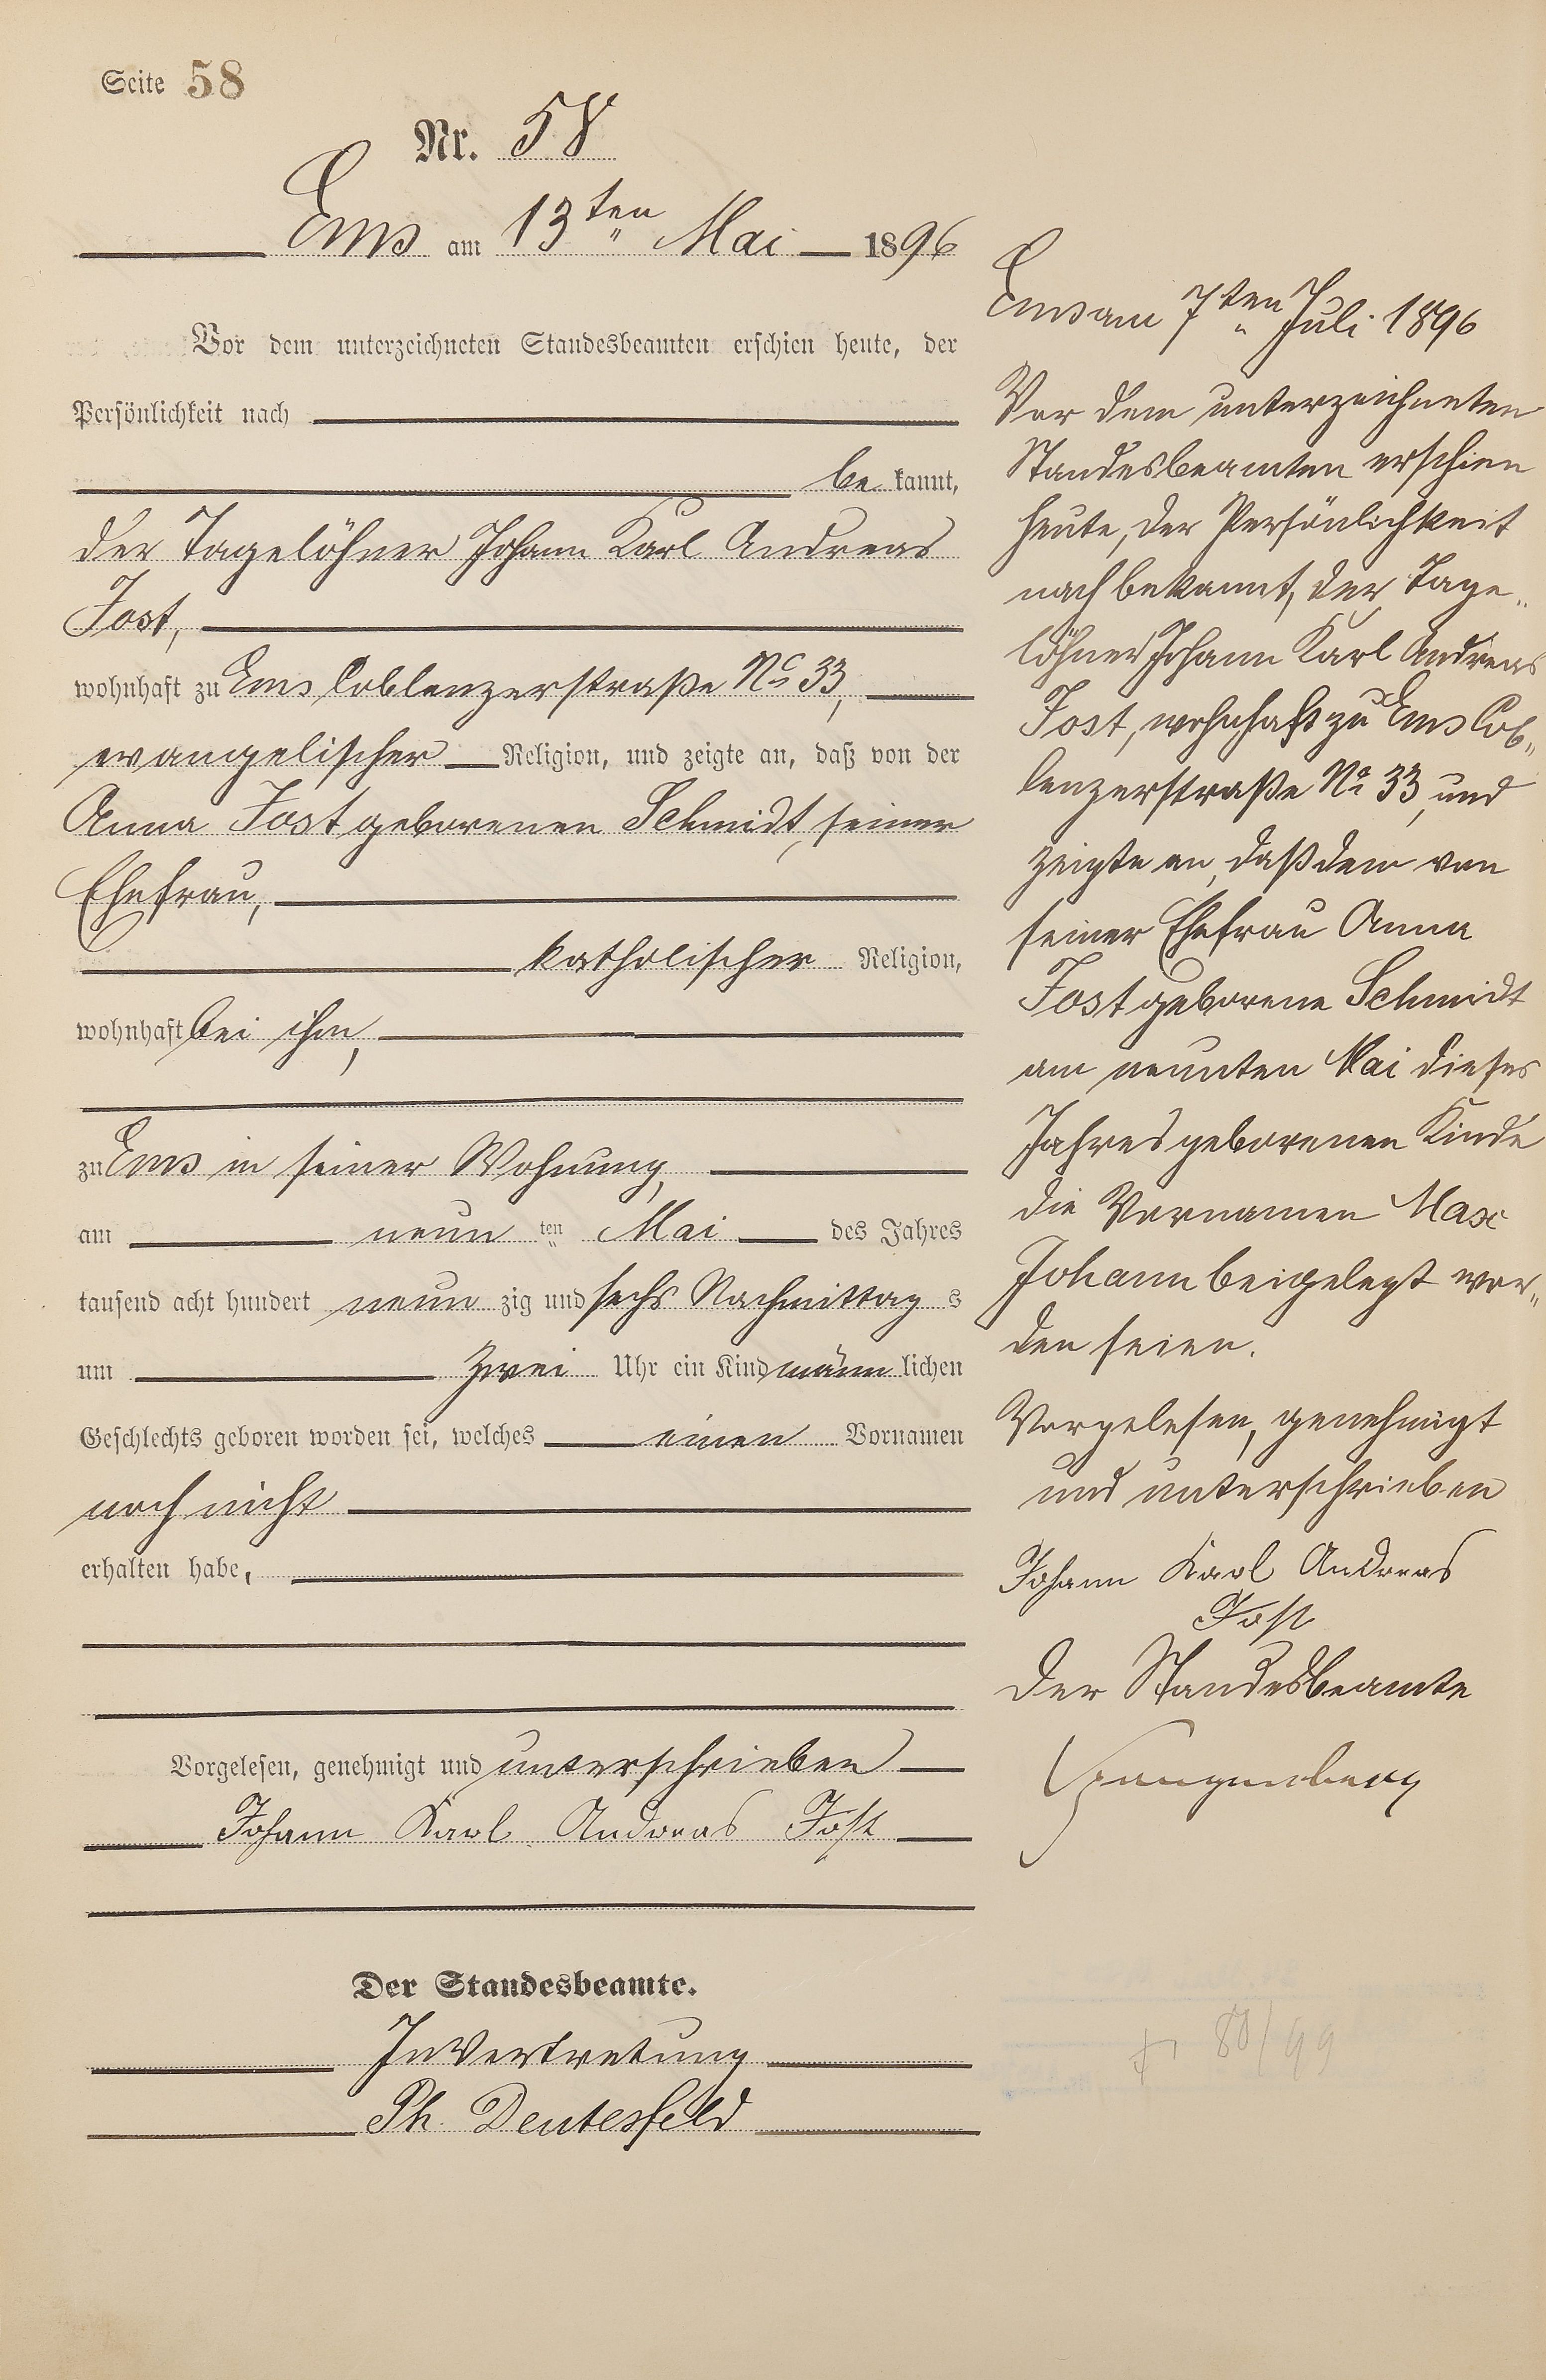 Seite 58
Nr. 58
Ems am 13ten Mai 1896
Vor dem unterzeichneten Standesbeamten erschien heute, der
Persönlichkeit nach
be kannt,
der Tagelöhner Johann Karl Andreas
Jost,
wohnhaft zu Ems Coblenzerstraße No 33,
evangelischer Religion, und zeigte an, daß von der
Anna Jost geborenen Schmidt, seiner
Ehefrau,
katholischer Religion,
wohnhaft bei ihm,
zu Ems in seiner Wohnung,
am neun ten Mai des Jahres
tausend acht hundert neun zig und sechs Nachmittag s
um zwei Uhr ein Kind männ lichen
Geschlechts geboren worden sei, welches einen Vornamen
noch nicht
erhalten habe,
Vorgelesen, genehmigt und unterschrieben
Johann Karl Andreas Jost
Der Standesbeamte.
In Vertretung
Ph. Deutesfeld
Ems am 7ten Juli 1896
Vor dem unterzeichneten
Standesbeamten erschien
heute, der Persönlichkeit
nach bekannt, der Tage„
löhner Johann Karl Andreas
Jost, wohnhaft zu Ems Cob„
lenzerstraße No 33, und
zeigte an, daß dem von
seiner Ehefrau Anna
Jost geborene Schmidt
am neunten Mai dieses
Jahres geborenen Kinde
die Vornamen Max
Johann beigelegt wor„
den seien.
Vorgelesen, genehmigt
und unterschrieben
Johann Karl Andreas
Jost
Der Standesbeamte
Spangenberg
† 80/99